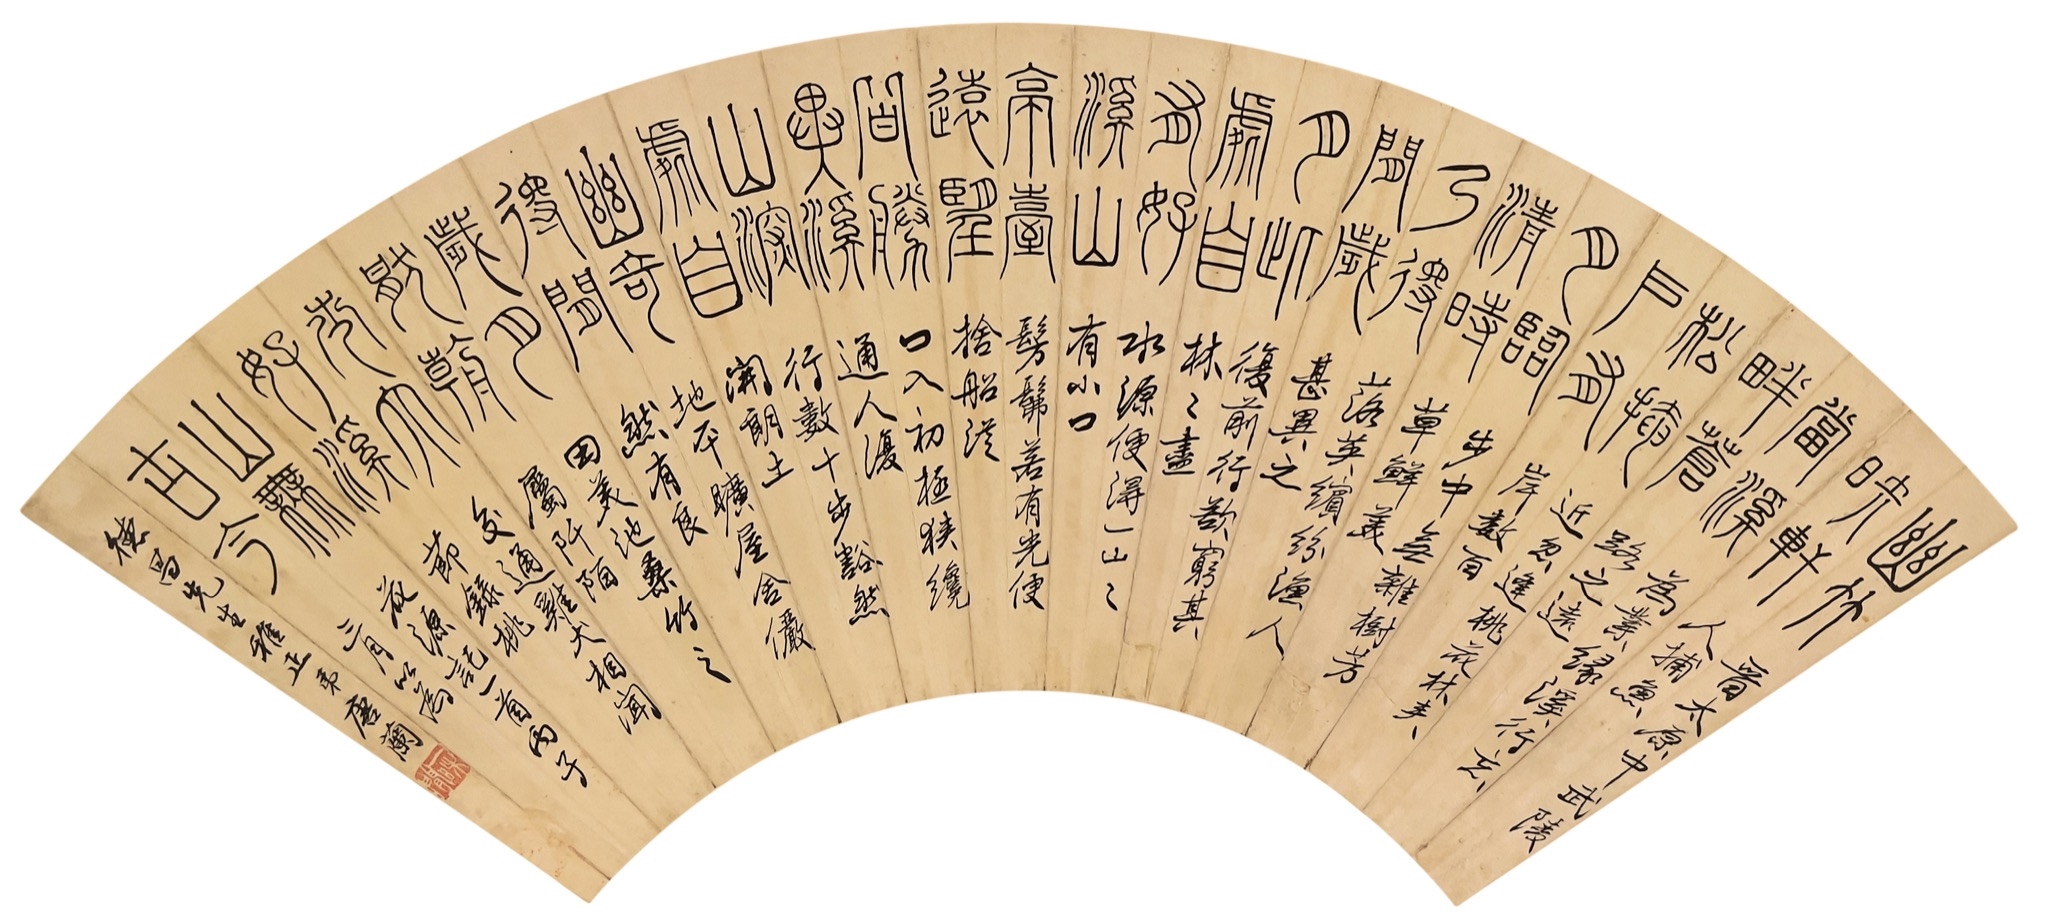 幽竹
映軒
當溪
畔蒼
松猗
戶有
月臨
清時
乃後
閒歲
月此
處自
有好
溪山
亭臺
遠望
間勝
溪
山深
處自
幽奇
後閒
歲月
朝
大
好溪
山無
古今
晉太原中武陵
人捕魚
為業緣溪行忘
路之遠
近忽逢桃花林夾
岸數百
步中無雜樹芳
草鮮美
落英繽紛漁人
甚異之
復前行欲窮其
林〻盡
水源便得一山〻
有小口
髣髴若有光便
捨船從
口入初極狹纔
通人復
行數十步豁然
開朗土
地平曠屋舍儼
然有良
田美池桑竹之
屬阡陌
交通雞犬相聞
節錄桃
花源記一首丙子
三月以為
德昌先生雅正 弟唐蘭